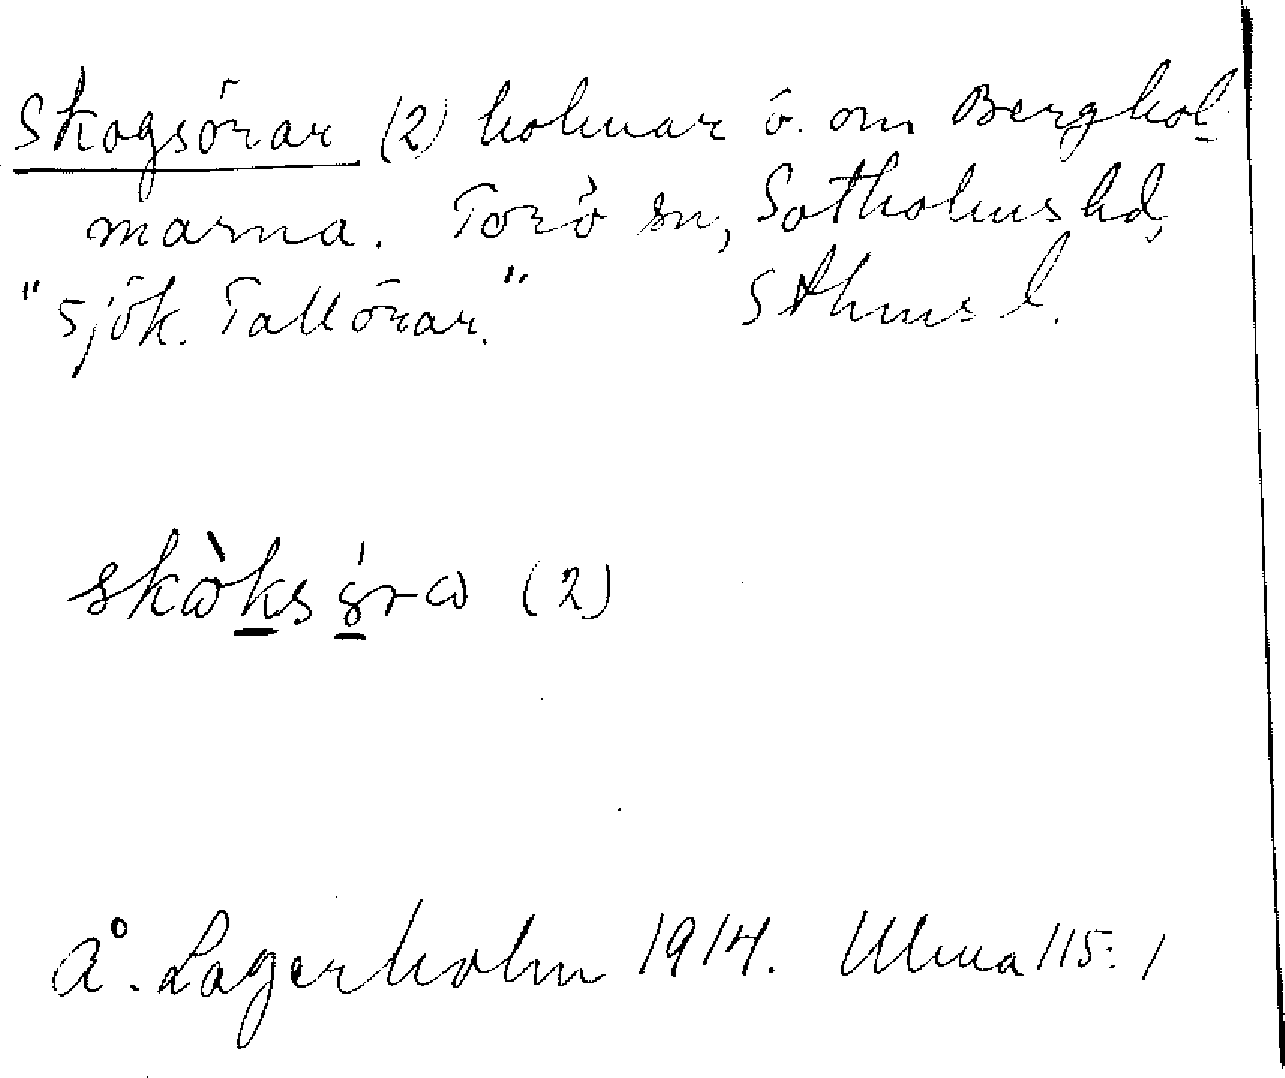 Skogsörar (2) holmar ö. om Berghol-
marna. Torö sn, Sotholms hd,
"sjök. Tallörar." Sthms l.
skɷ̀ks ö́rɷ (2)
Å. Lagerholm 1914. Ulma 115:1